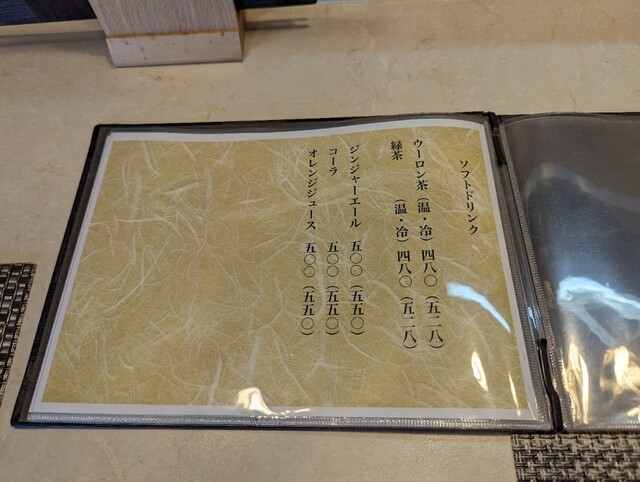 ソフトドリンク
ウーロン茶（温・冷）四八〇（五二八）
緑茶（温・冷）四八〇（五二八）
ジンジャーエール 五〇〇（五五〇）
コーラ 五〇〇（五五〇）
オレンジジュース 五〇〇（五五〇）